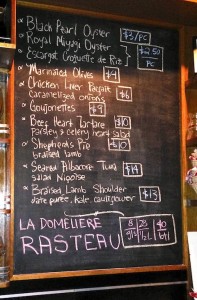 Black Pearl Oyster $3/PC
Royal Miyagi Oyster $2.50
Escargot Croquette de Riz PC
Marinated Olives $4
Chicken Liver Parfait
caramelized onions $6
Goujonettes $5
Beef Heart Tartare $10
Parsley & celery heart salad
Shepherds Pie $10
braised lamb
Seared Albacore Tuna $14
salad Niçoise
Braised Lamb Shoulder $13
date puree, kale, cauliflower
LA DOMELIERE 8 25 40
RASTEAU gls ½L btl